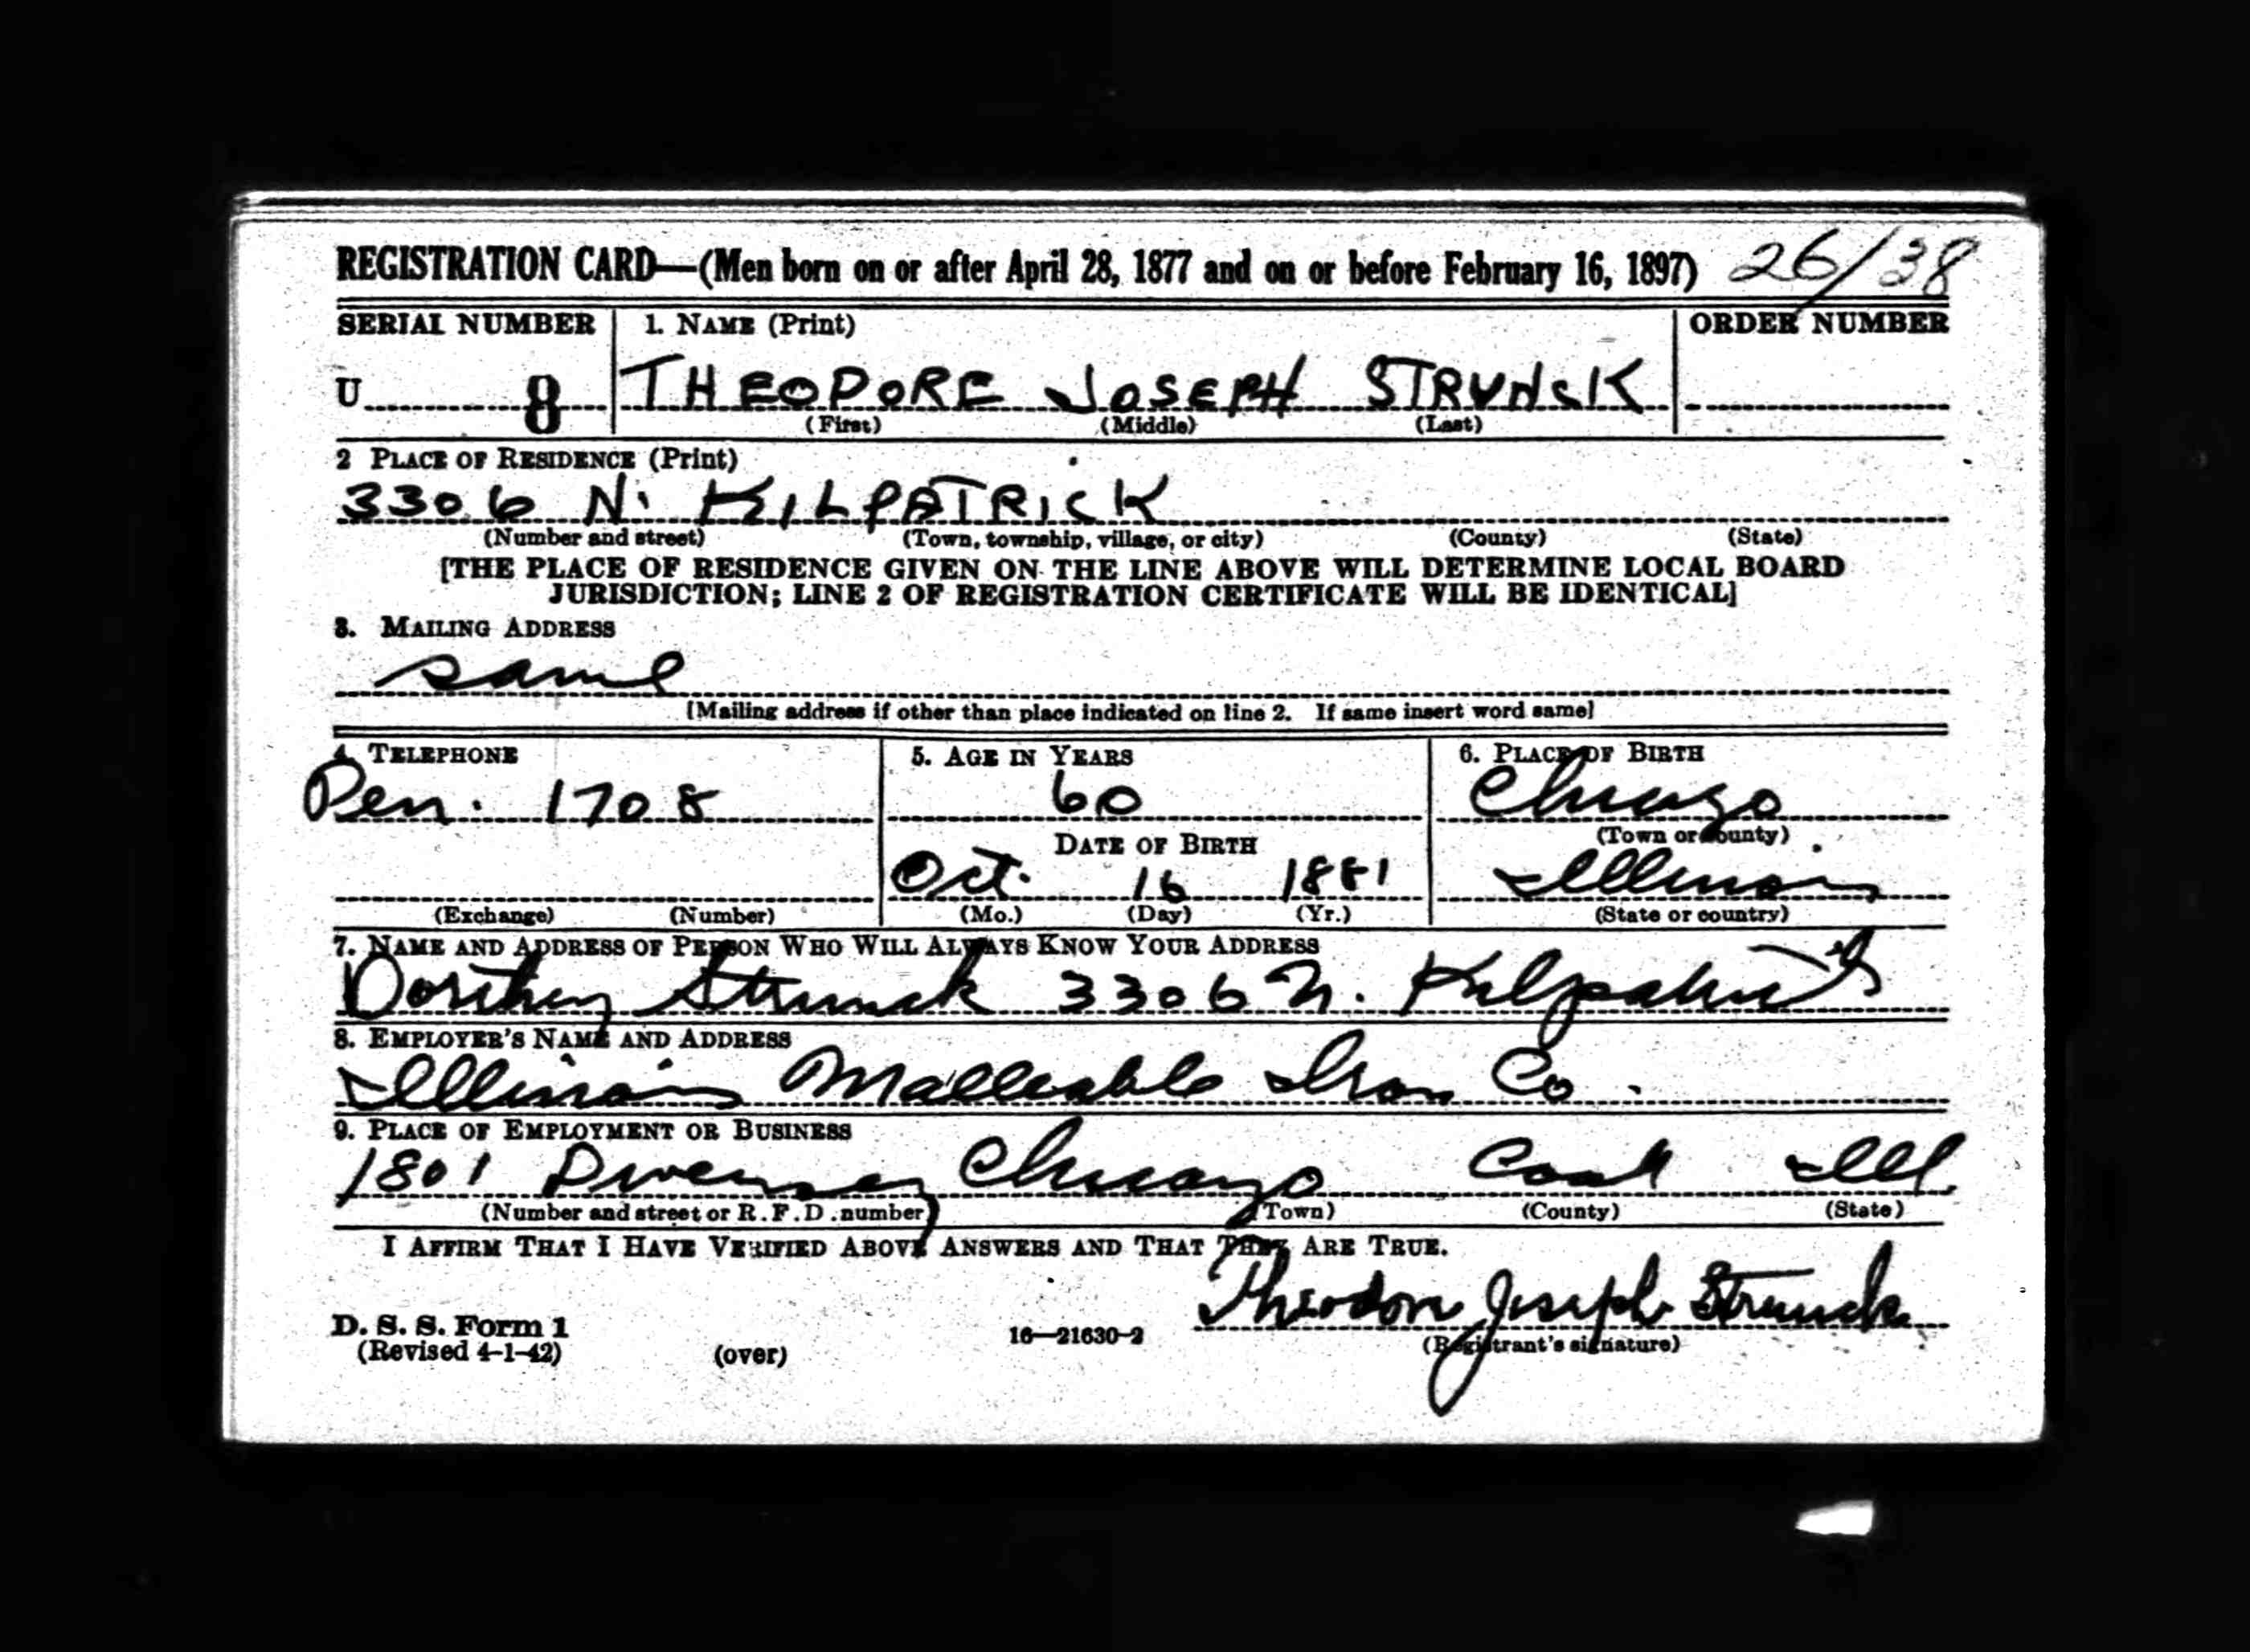 REGISTRATION CARD—(Men born on or after April 28, 1877 and on or before February 16, 1897) 26/38
SERIAL NUMBER 1. NAME (Print) ORDER NUMBER
U 8 THEODORE JOSEPH STRUNCK
(First) (Middle) (Last)
2 PLACE OF RESIDENCE (Print)
3306 N. KILPATRICK
(Number and street) (Town, township, village, or city) (County) (State)
[THE PLACE OF RESIDENCE GIVEN ON THE LINE ABOVE WILL DETERMINE LOCAL BOARD
JURISDICTION; LINE 2 OF REGISTRATION CERTIFICATE WILL BE IDENTICAL]
3. MAILING ADDRESS
same
[Mailing address if other than place indicated on line 2. If same insert word same]
4. TELEPHONE 5. AGE IN YEARS 6. PLACE OF BIRTH
Pen. 1708 60 Chicago
DATE OF BIRTH (Town or county)
Oct. 16 1881 Illinois
(Exchange) (Number) (Mo.) (Day) (Yr.) (State or country)
7. NAME AND ADDRESS OF PERSON WHO WILL ALWAYS KNOW YOUR ADDRESS
Dorthey Strunck 3306 N. Kilpatrick
8. EMPLOYER'S NAME AND ADDRESS
Illinois Malleable Iron Co.
9. PLACE OF EMPLOYMENT OR BUSINESS
1801 Diversey Chicago Cook Ill.
(Number and street or R. F. D. number) (Town) (County) (State)
I AFFIRM THAT I HAVE VERIFIED ABOVE ANSWERS AND THAT THEY ARE TRUE.
Theodore Joseph Strunck
D. S. S. Form 1 16—21630-2 (Registrant's signature)
(Revised 4-1-42) (over)